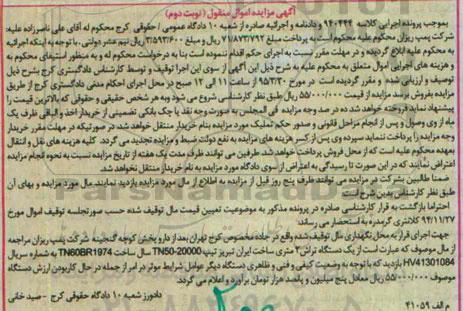 آگهی مزایده اموال منقول (نوبت دوم)
بموجب پرونده اجرایی کلاسه ۹۴۰۴۴۴ و دادنامه و اجرائیه صادره از شعبه ۱۰ دادگاه عمومی / حقوقی کرج محکوم له آقای علی ناصرزاده علیه:
شرکت پمپ ریزان محکوم علیه محکوم است به پرداخت مبلغ ۷۱/۸۷۳/۷۹۲ ریال و مبلغ ۳/۵۹۳/۶۰۰ ریال نیم عشر دولتی. با توجه به اینکه اجرائیه
به محکوم علیه ابلاغ گردیده و در مهلت مقرر نسبت به اجرای حکم اقدام ننموده است بنا به درخواست محکوم له و به منظور استیفای محکوم به
و هزینه های اجرایی اموال متعلق به محکوم علیه به شرح ذیل این آگهی از سوی این اجرا توقیف و توسط کارشناس دادگستری کرج بشرح ذیل
توصیف و ارزیابی شده و مقرر گردیده است در مورخ ۹۵/۳/۳۰ از ساعت ۱۱ الی ۱۲ صبح در محل اجرای احکام مدنی دادگستری کرج از طریق
مزایده بفروش برسد مزایده از قیمت ۵۵/۰۰۰/۰۰۰ ریال طبق نظر کارشناسی شروع می شود و به هر شخص حقیقی و حقوقی که بالاترین قیمت را
پیشنهاد نماید فروخته خواهد شد ده در صد وجه مزایده فی المجلس به صورت وجه نقد یا چک بانکی تضمینی از خریدار اخذ و الباقی ظرف یک
ماه از وی وصول و پس از انجام مراحل قانونی و صدور حکم تملیک مورد مزایده بنام خریدار منتقل خواهد شد. در صورتیکه در مهلت مقرر خریدار
وجه مزایده را پرداخت ننماید سپرده وی پس از کسر هزینه های مزایده به نفع دولت ضبط و مزایده تجدید می گردد. کلیه هزینه های نقل و انتقال
بعهده محکوم علیه است که از محل فروش پرداخت خواهد شد. طرفین می توانند ظرف مدت یک هفته از تاریخ مزایده نسبت به نحوه انجام مزایده
اعتراض نمایند که در این صورت تا رسیدگی به اعتراض از سوی دادگاه مورد مزایده به نام خریدار منتقل نخواهد شد.
ضمنا طالبین شرکت در مزایده می توانند ظرف پنج روز قبل از مزایده به اطلاع از مال مورد مزایده بازدید نمایند. مال مورد مزایده و بهای آن
طبق نظر کارشناس بدین شرح است
احتراما بازگشت به قرار کارشناسی صادره در پرونده مذکور به موضوعیت تعیین قیمت مال توقیف شده حسب صورتجلسه توقیف اموال مورخ
۹۴/۱۱/۲۷ کلانتری گرمدره به استحضار می رساند:
جهت اجرای قرار به محل نگهداری مال توقیف شده واقع در جاده مخصوص کرج تهران بعد از دارو پخش کوچه گنجینه شرکت پمپ ریزان مراجعه
از مال موصوف که عبارت است از یک دستگاه تراش ۲ متری ساخت ایران تبریز تیپ TN50-20000 سال ساخت TN60BR1974 به شماره سریال
HV41301084 بازدید که با توجه به وضعیت کیفی و فنی و ظاهری دستگاه دیگر عوامل شرایط موثر در امر از جمله در حال کاربودن ارزش دستگاه
موصوف ۵۵/۰۰۰/۰۰۰ ریال معادل پنج میلیون و پانصد هزار تومان برآورد و اعلام می گردد.
دادورز شعبه ۱۰ دادگاه حقوقی کرج - صید خانی
م الف ۴۱۰۵۹